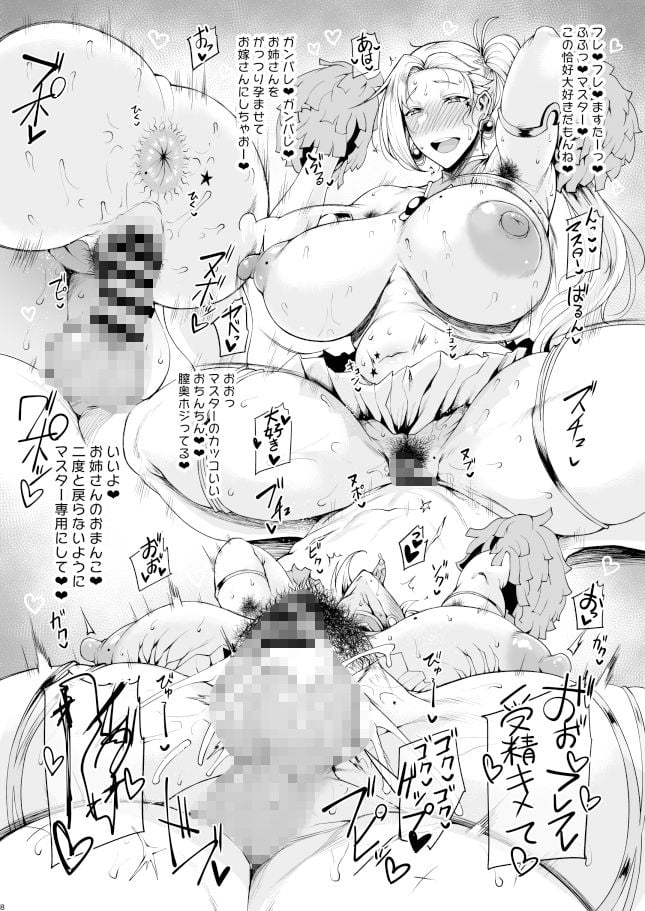 フレ♥フレ♥ますたーっ
ふふっ♥マスター♥
この恰好大好きだもんね♥
あはぁ♥
おっ♥
ガンバレ♥ガンバレ♥
お姉さんを
がっつり孕ませて
お嫁さんにしちゃおー♥
ぶるっ
ひくっ
ひくっ
んっ♥
マスター♥
ばるんっ
ヌボッ
ヤベっ♥
キュン
キュン
おおっ
マスターのカッコいい
おちんちん♥♥
膣奥ホジってる♥
大好き♥
ズチュ
ヌポ
ヌブ
ブチュ
いいよ♥
お姉さんのおまんこ♥
二度と戻らないように
マスター専用にして♥♥
おおぉ♥
ビクッ
おっ♥
ガクッ
びゅーっ
びゅるーっ
おぉ♥フレフレ
受精キメて
ゴクッ
ゴクッ
ゲップ
8